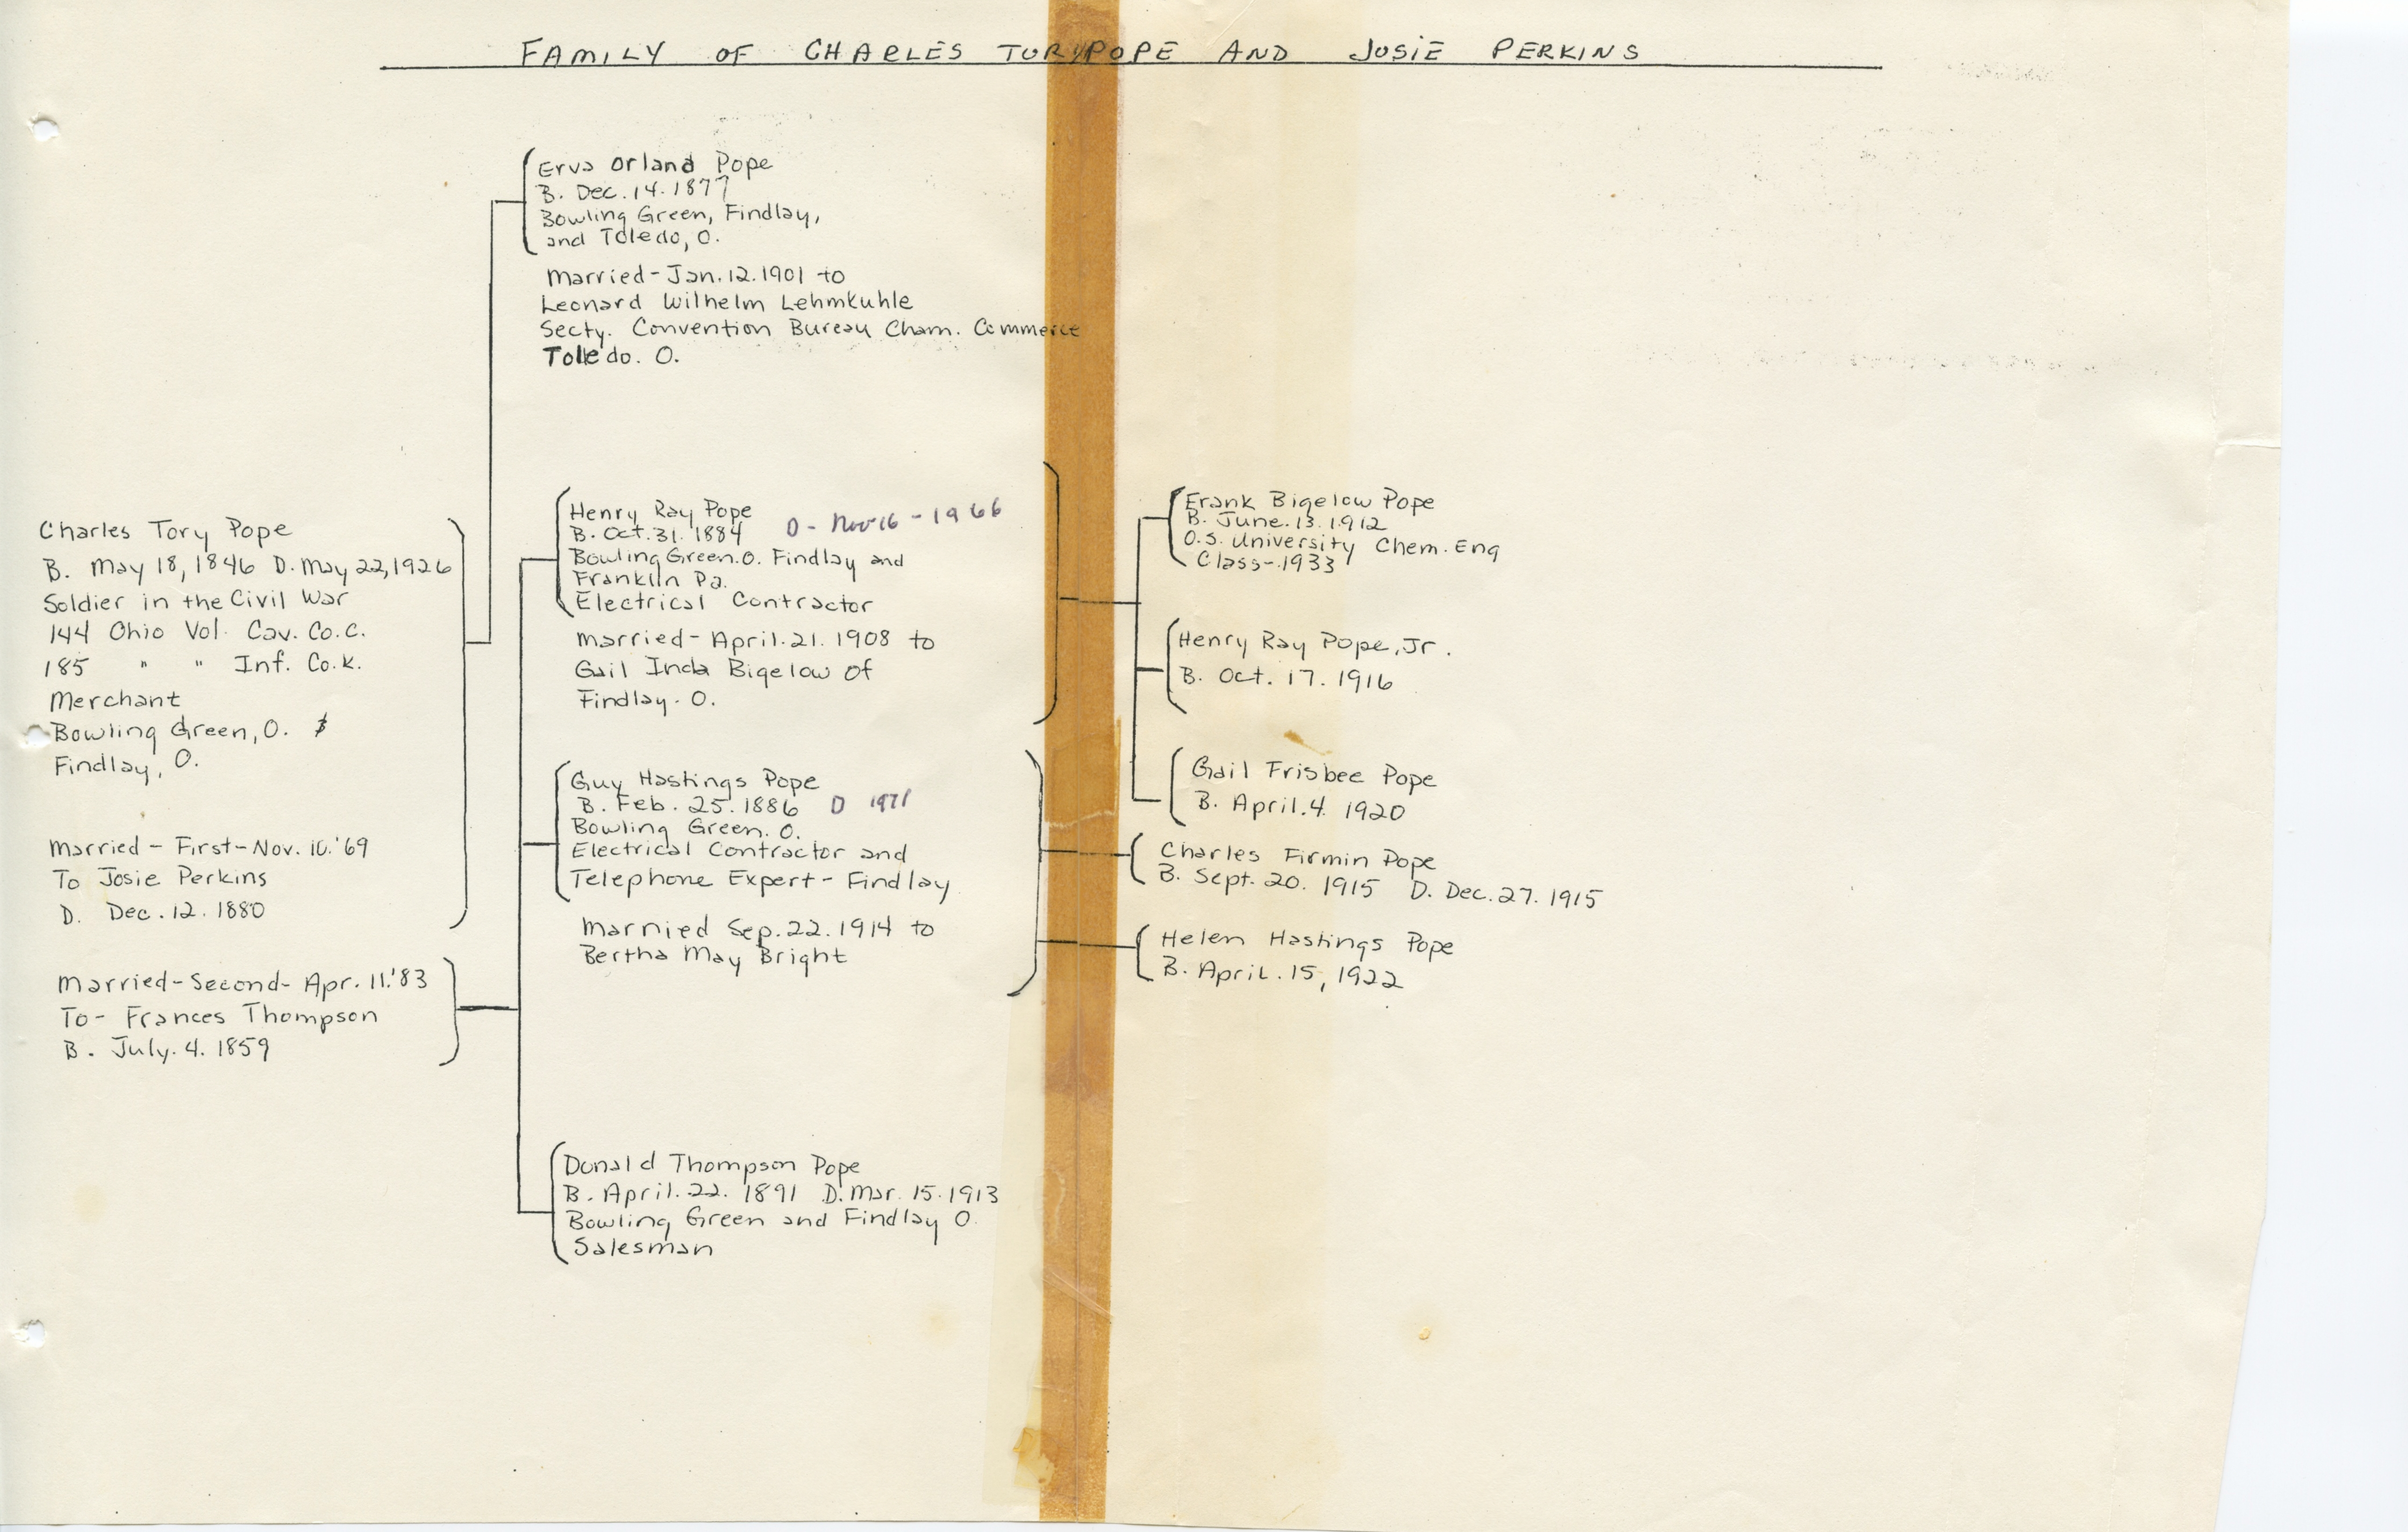 FAMILY OF CHARLES TORY POPE AND JOSIE PERKINS
Charles Tory Pope
B. May 18, 1846 D. May 22, 1926
Soldier in the Civil War
144 Ohio Vol. Cav. Co. C.
185 " " Inf. Co. K.
Merchant
Bowling Green, O. &
Findlay, O.
Married - First - Nov. 10. '69
To Josie Perkins
D. Dec. 12. 1880
Married - Second - Apr. 11. '83
To - Frances Thompson
B. July. 4. 1859
Erva Orland Pope
B. Dec. 14. 1877
Bowling Green, Findlay,
and Toledo, O.
Married - Jan. 12. 1901 to
Leonard Wilhelm Lehmkuhle
Secty. Convention Bureau Cham. Commerce
Toledo. O.
Henry Ray Pope
B. Oct. 31. 1884 D - Nov 16 - 1966
Bowling Green. O. Findlay and
Franklin Pa.
Electrical Contractor
Married - April. 21. 1908 to
Gail Inda Bigelow of
Findlay. O.
Guy Hastings Pope
B. Feb. 25. 1886 D 1971
Bowling Green. O.
Electrical Contractor and
Telephone Expert - Findlay
Married Sep. 22. 1914 to
Bertha May Bright
Donald Thompson Pope
B. April. 22. 1891 D. Mar. 15. 1913
Bowling Green and Findlay O.
Salesman
Frank Bigelow Pope
B. June. 13. 1912
O.S. University Chem. Eng
Class - 1933
Henry Ray Pope, Jr.
B. Oct. 17. 1916
Gail Frisbee Pope
B. April. 4. 1920
Charles Firmin Pope
B. Sept. 20. 1915 D. Dec. 27. 1915
Helen Hastings Pope
B. April. 15, 1922